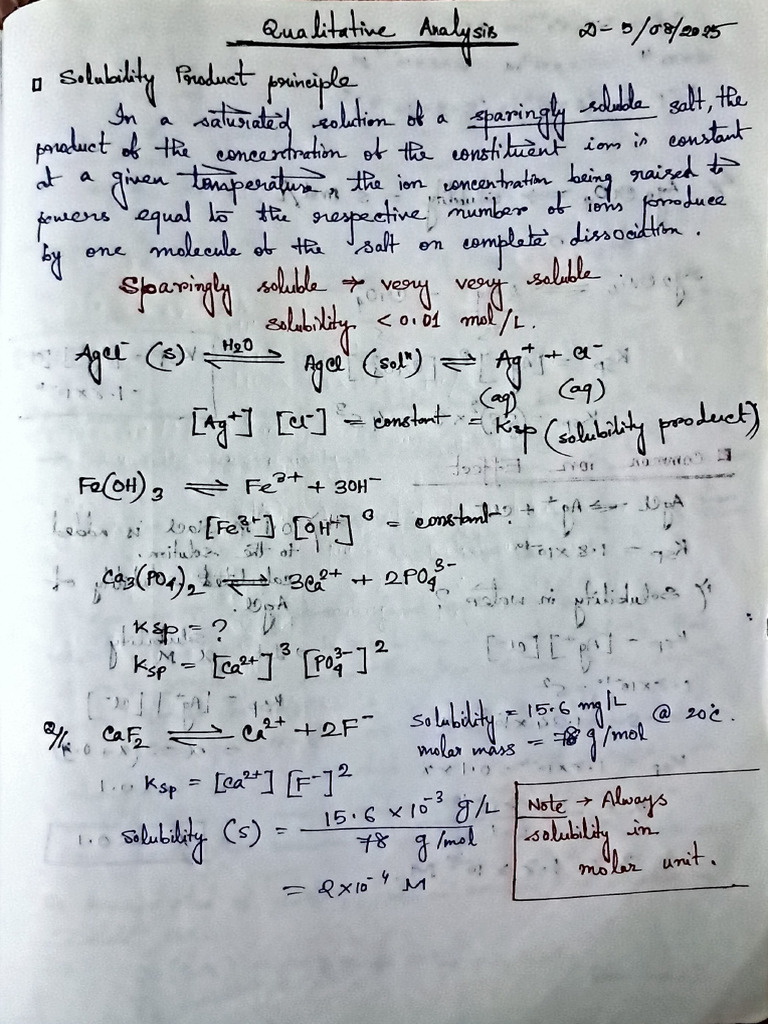 Qualitative Analysis D- 5/08/2025
Solubility Product principle
In a saturated solution of a sparingly soluble salt, the
product of the concentration of the constituent ions is constant
at a given temperature, the ion concentration being raised to
powers equal to the respective number of ions produce
by one molecule of the salt on complete dissociation.
Sparingly soluble → very very soluble
solubility < 0.01 mol/L.
AgCl (s) ⇌ H2O AgCl (solⁿ) ⇌ Ag⁺ + Cl⁻
(aq) (aq)
[Ag⁺] [Cl⁻] = constant = Ksp (solubility product)
Fe(OH)3 ⇌ Fe³⁺ + 3OH⁻
[Fe³⁺] [OH⁻]³ = constant.
Ca3(PO4)2 ⇌ 3Ca²⁺ + 2PO4³⁻
Ksp = ?
Ksp = [Ca²⁺]³ [PO4³⁻]²
Q/ CaF2 ⇌ Ca²⁺ + 2F⁻ solubility = 15.6 mg/L @ 20°C.
molar mass = 78 g/mol
Ksp = [Ca²⁺] [F⁻]²
Solubility (s) = 15.6 × 10⁻³ g/L
78 g/mol
= 2×10⁻⁴ M
Note → Always
solubility in
molar unit.